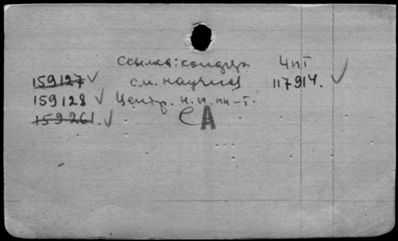 Ссылка: 4пТ
159127 см. научно 117914.
159128 Центр. н. и. ин-т.
159261.
А